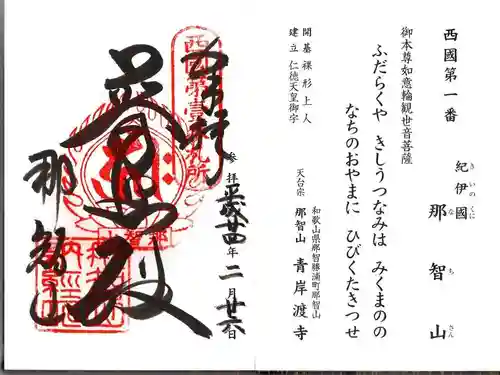 西國第一番
紀伊國 那智山
きいのくに なちさん
御本尊如意輪観世音菩薩
ふだらくや きしうつなみは みくまのの
なちのおやまに ひびくたきつせ
開基 裸形上人
建立 仁徳天皇御宇
和歌山県那智勝浦町那智山
天台宗 那智山 青岸渡寺
奉拝
西国第壹番札所
参拝 平成廿四年二月廿六日
普照殿
那智山